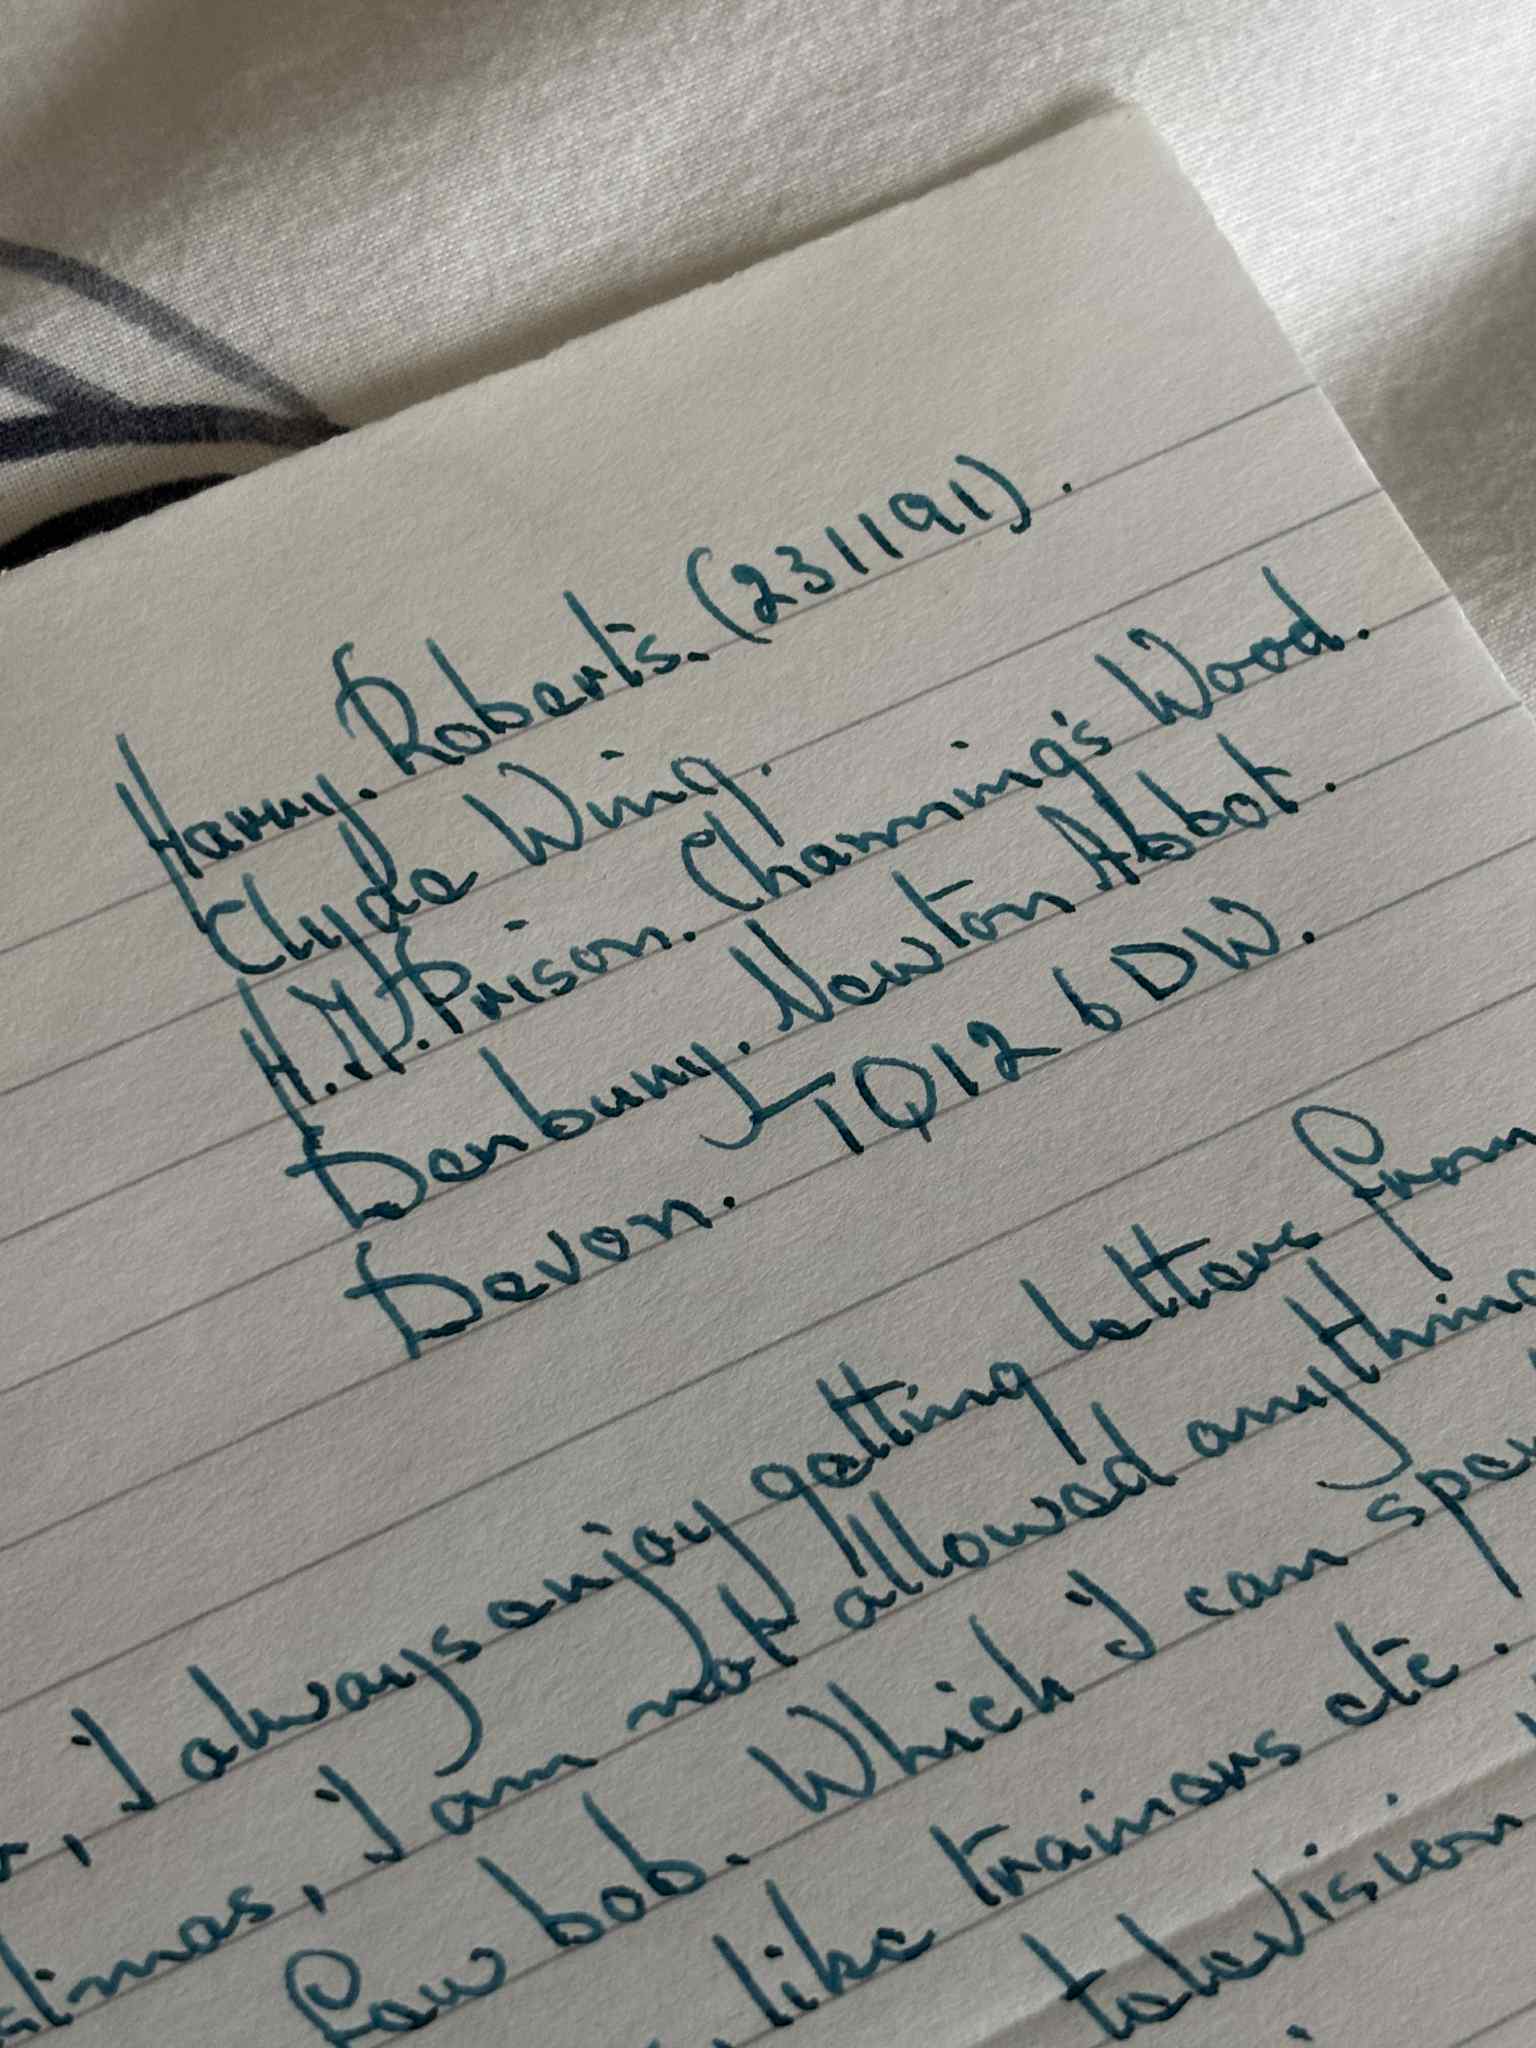 Harry. Roberts. (231191).
Clyde Wing.
H.M. Prison. Channing's Wood.
Denbury. Newton Abbot.
Devon. TQ12 6DW.
, I always enjoy getting letters from
, I am not allowed anything
few bob. Which I can
, like trainers etc.
television